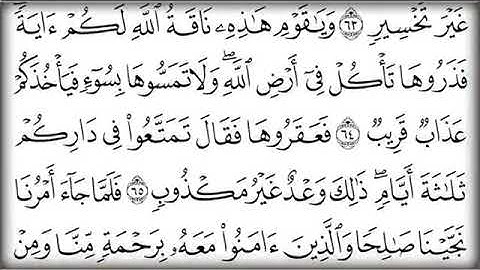 غَيْرَ تَخْسِيرٍ ﴿٦٣﴾ وَيَٰقَوْمِ هَٰذِهِۦ نَاقَةُ ٱللَّهِ لَكُمْ ءَايَةً
فَذَرُوهَا تَأْكُلْ فِىٓ أَرْضِ ٱللَّهِۖ وَلَا تَمَسُّوهَا بِسُوٓءٍ فَيَأْخُذَكُمْ
عَذَابٌ قَرِيبٌ ﴿٦٤﴾ فَعَقَرُوهَا فَقَالَ تَمَتَّعُوا۟ فِى دَارِكُمْ
ثَلَٰثَةَ أَيَّامٍۖ ذَٰلِكَ وَعْدٌ غَيْرُ مَكْذُوبٍ ﴿٦٥﴾ فَلَمَّا جَآءَ أَمْرُنَا
نَجَّيْنَا صَٰلِحًا وَٱلَّذِينَ ءَامَنُوا۟ مَعَهُۥ بِرَحْمَةٍ مِّنَّا وَمِنْ